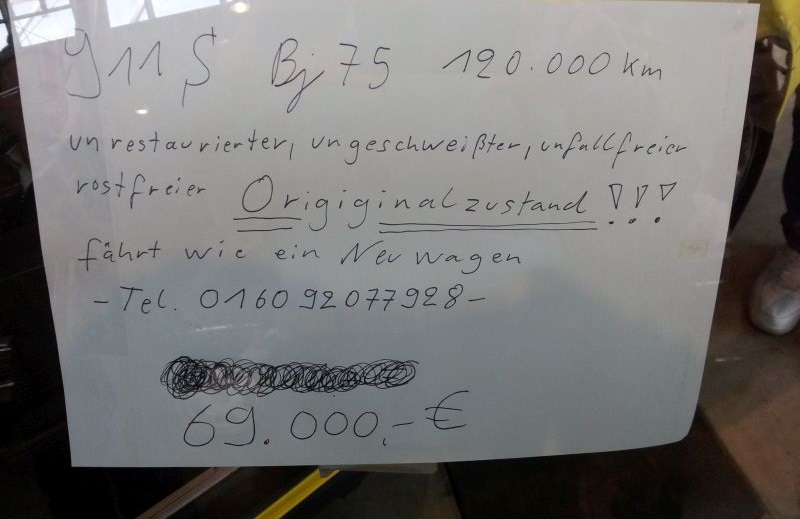 911 S Bj 75 120.000 km
unrestaurierter, ungeschweißter, unfallfreier
rostfreier Origiginalzustand !!!
fährt wie ein Neuwagen
- Tel. 0160 92077928 -
69.000,- €